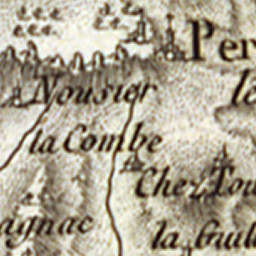 Per
Nousier
le
la Combe
Chez Tou
agnac
la Guil